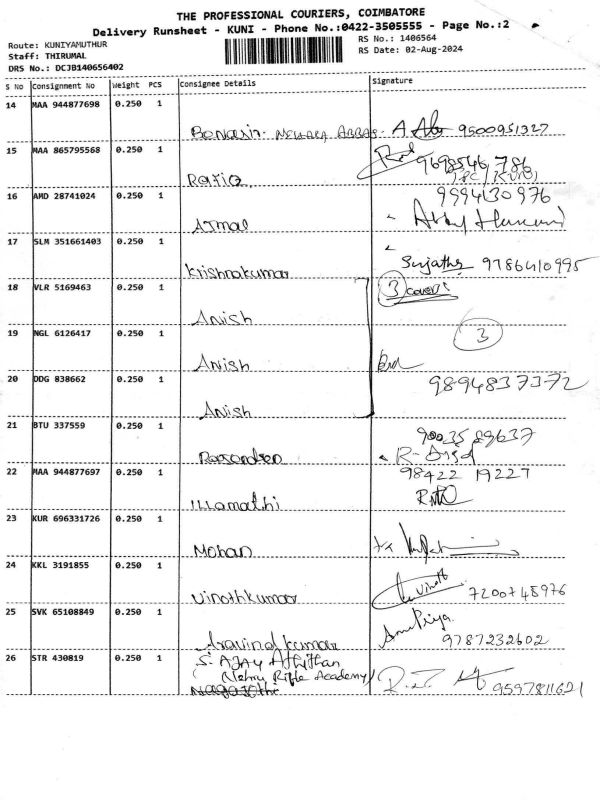 THE PROFESSIONAL COURIERS, COIMBATORE
Delivery Runsheet - KUNI - Phone No.:0422-3505555 - Page No.:2
Route: KUNIYAMUTHUR
RS No.: 1406564
Staff: THIRUMAL
RS Date: 02-Aug-2024
DRS No.: DCJB140656402
S No Consignment No Weight PCS Consignee Details Signature
14 MAA 944877698 0.250 1
Benasir 9500951327
15 MAA 865795568 0.250 1
9698546786
Rafiq
16 AMD 28741024 0.250 1
9994630976
Ajmal
17 SLM 351661403 0.250 1
Krishnakumar Sujatha 9786410995
18 VLR 5169463 0.250 1 3 covers
Anish
19 NGL 6126417 0.250 1 3
Anish
20 DDG 838662 0.250 1 9894837372
Anish
21 BTU 337559 0.250 1
22 MAA 944877697 0.250 1 98422 19227
Illamathi
23 KUR 696331726 0.250 1
Mohan
24 KKL 3191855 0.250 1
Vinothkumar Vinoth 7200748976
25 SVK 65108849 0.250 1 AnuPriya
Aravind kumar 9787232602
26 STR 430819 0.250 1 S. AJAY Athithan
(Nehru Rifle Academy)
9597811621